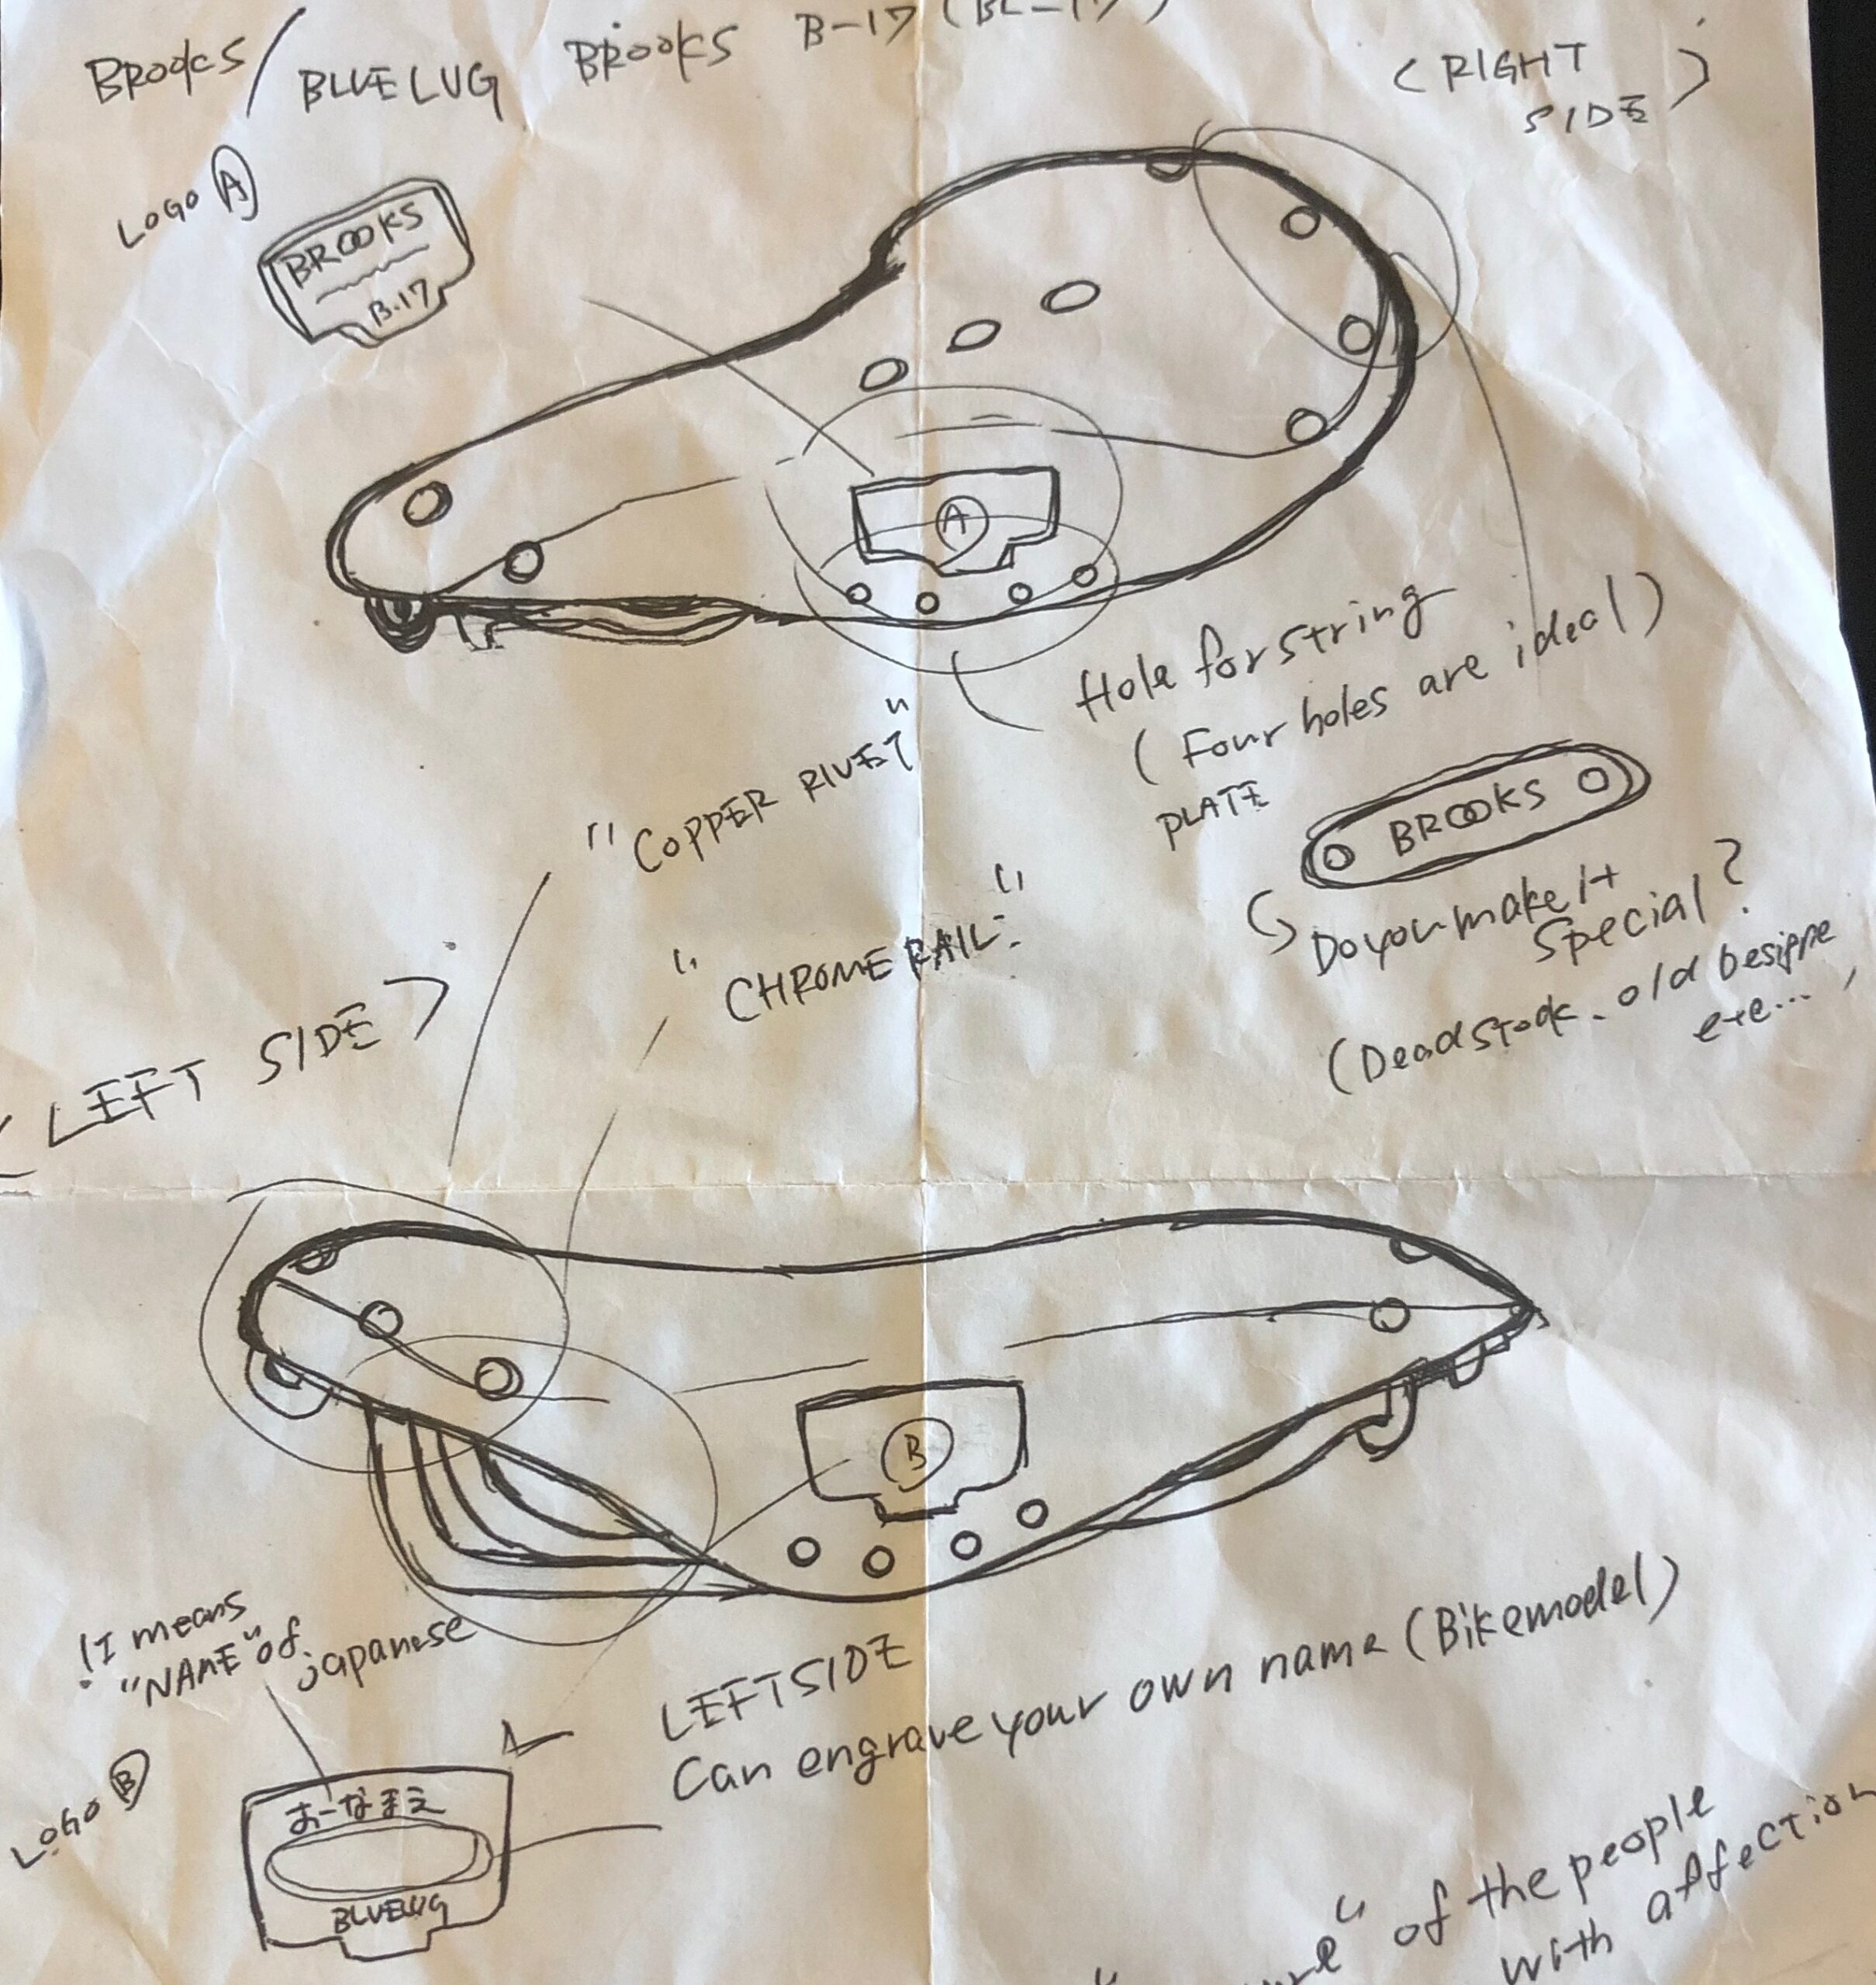 BROOKS/BLUELUG BROOKS B-17 (BL-17)
(RIGHT
SIDE)
LOGO Ⓐ
BROOKS
B.17
A
Hole for string
(Four holes are ideal)
"COPPER RIVET"
PLATE
BROOKS
"CHROME RAIL"
Do you make it
special?
(Deadstock. old besigne
ete...
<LEFT SIDE>
B
!I means
"NAME" of
japanese
LEFT SIDE
Can engrave your own name (Bikemodel)
LOGO Ⓑ
おーなまえ
BLUELUG
" of the people
with affection